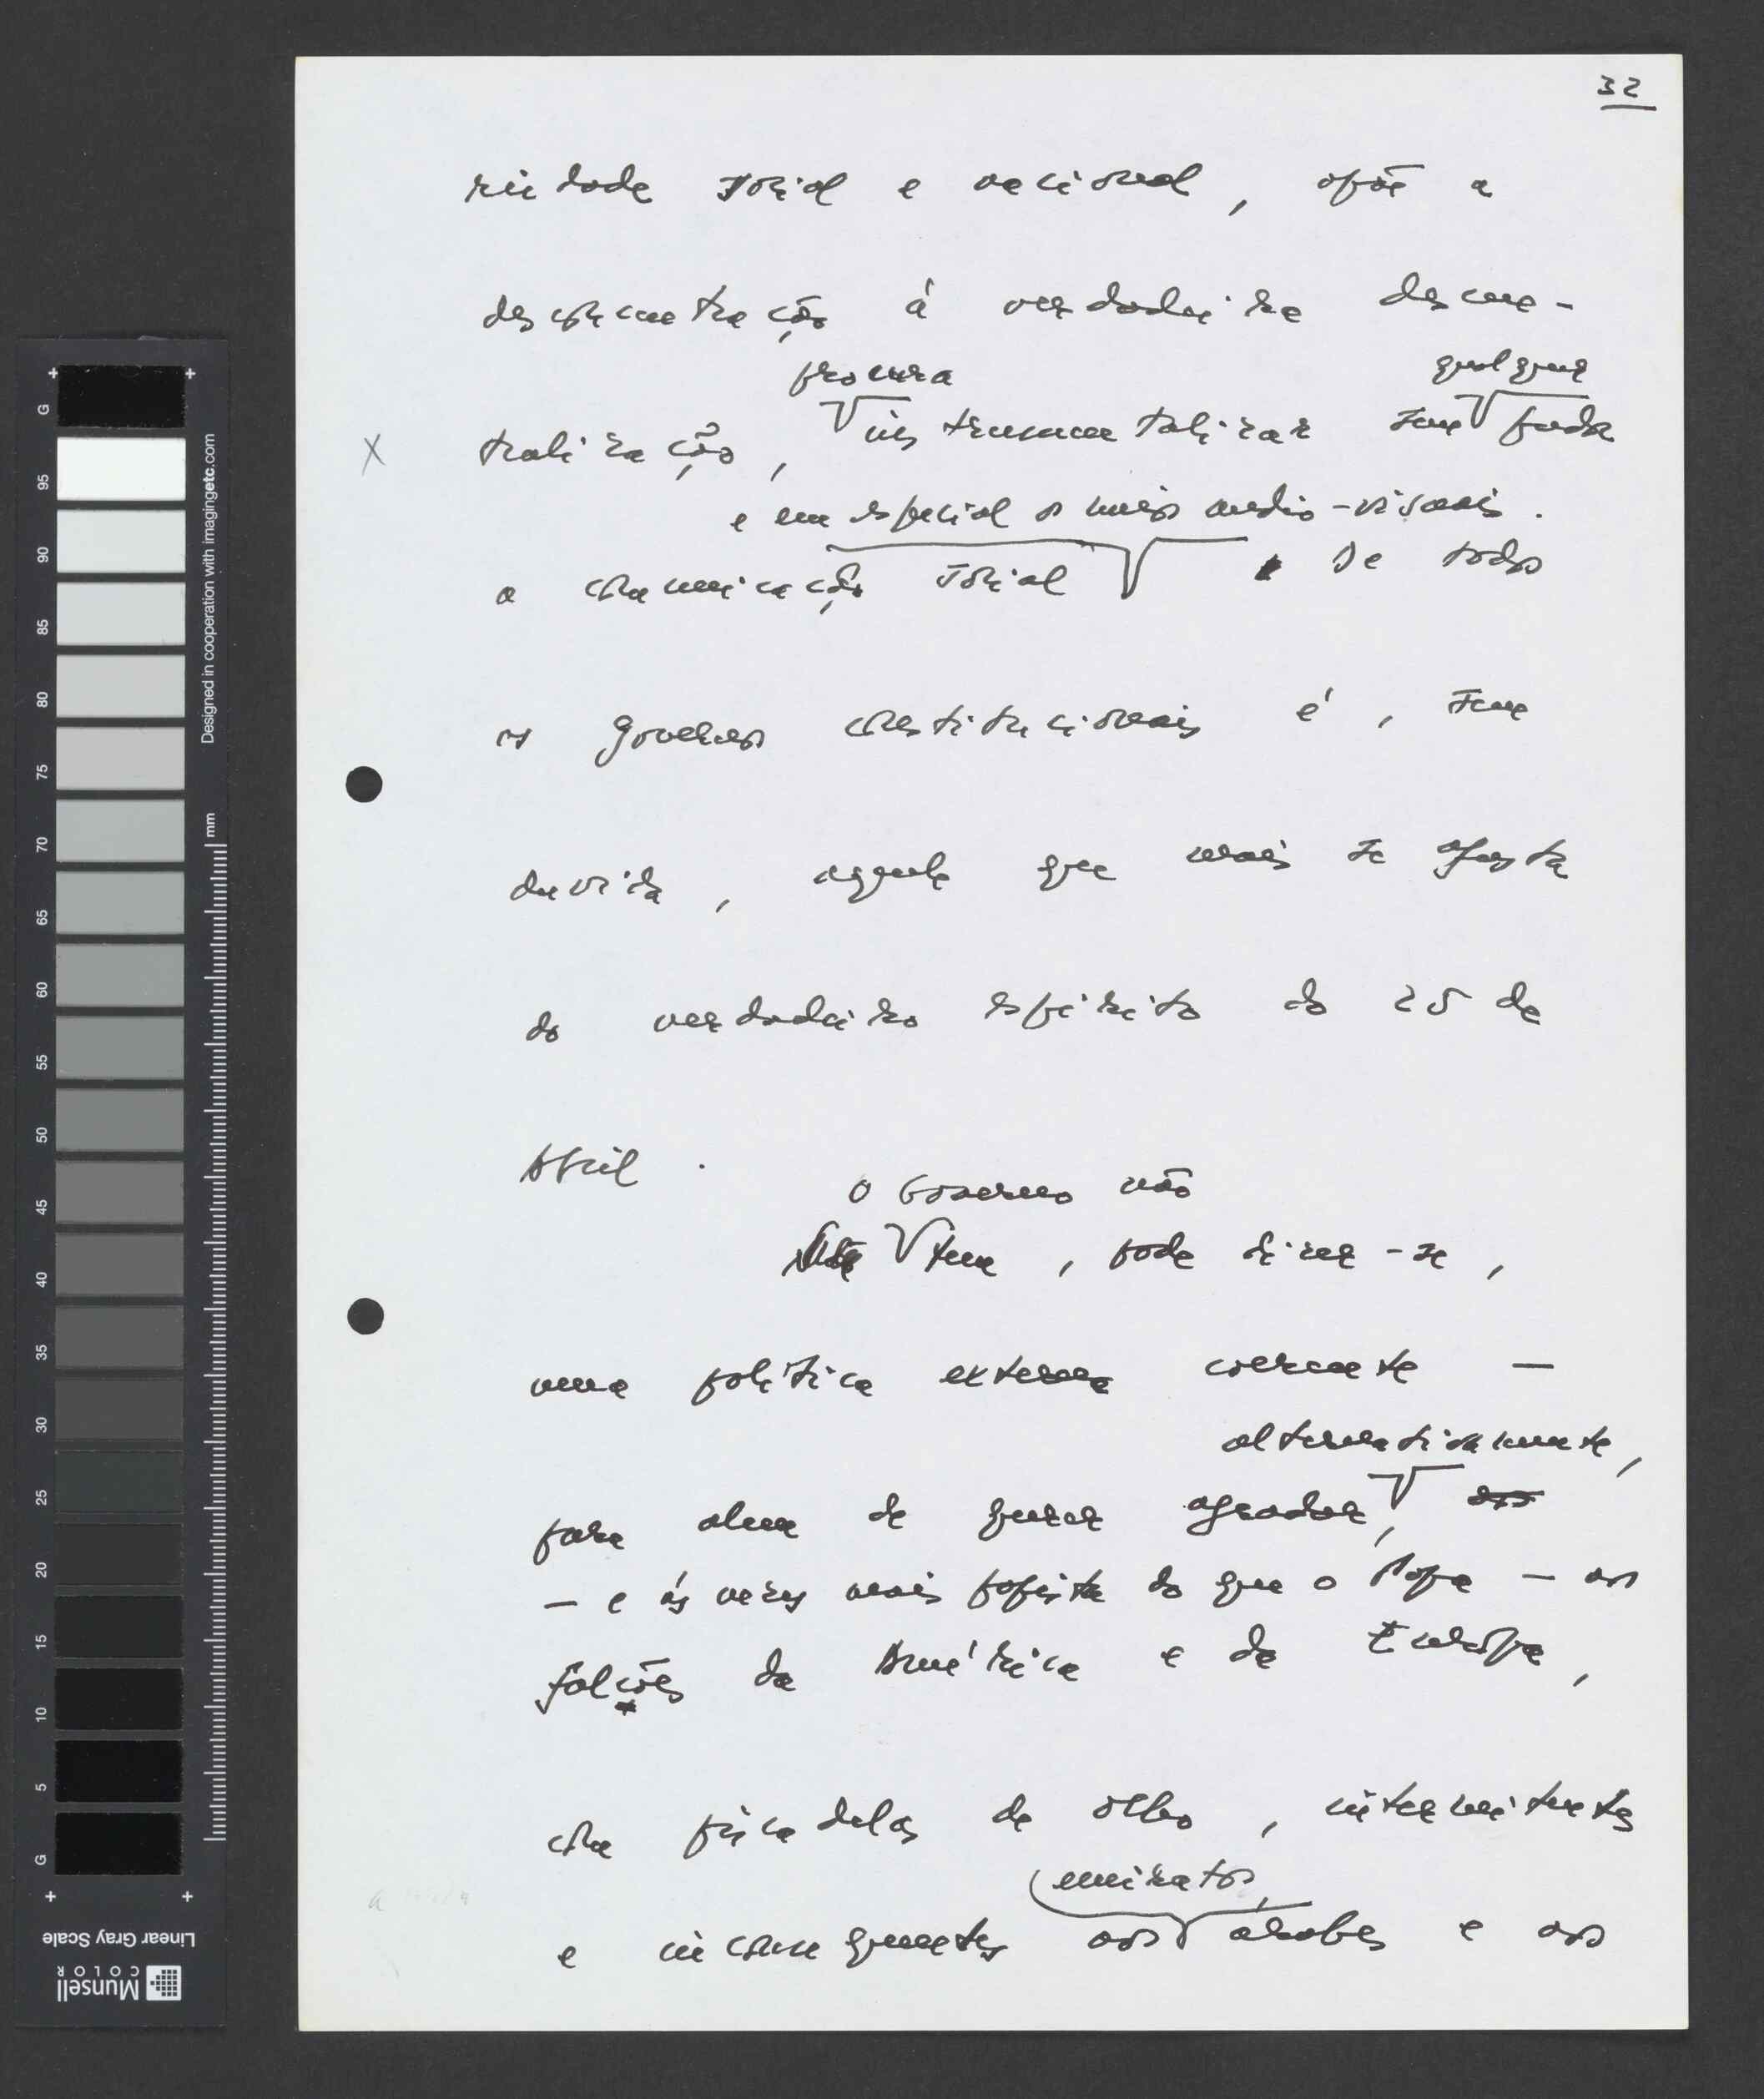 32
riedade social e nacional, opõe a
desconcentração à verdadeira descen-
procura qualquer
tralização, instrumentalizar sem pudor
e em especial os meios audio-visuais.
a comunicação social De todos
os governos constitucionais é, sem
duvida, aquele que mais se afasta
do verdadeiro espírito do 25 de
Abril.
O Governo não
tem, pode dizer-se,
uma política externa coerente —
alternativamente,
para alem de querer agradar, aos
— e às vezes mais papista do que o Papa — aos
falcões da América e da Europa,
com piscadelas de olho, intermitentes
emiratos
e inconsequentes aos árabes e aos
G 95 90 85 80 75 70 65 60 55 50 45 40 35 30 25 20 15 10 5 G
Designed in cooperation with imagingetc.com
mm
Linear Gray Scale
Munsell
COLOR